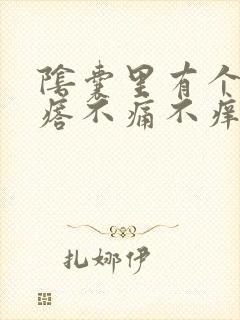 陰囊里有个
瘩不痛不痒
扎娜伊